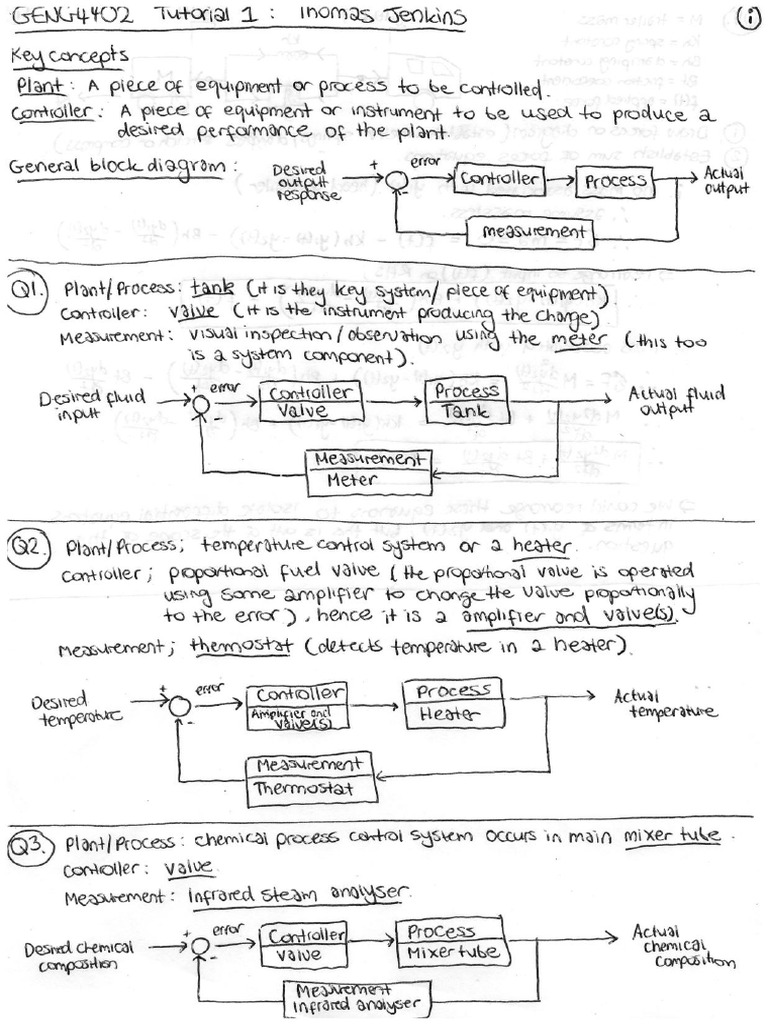 GENG4402 Tutorial 1 : Thomas Jenkins
i
Key concepts
Plant : A piece of equipment or process to be controlled.
Controller : A piece of equipment or instrument to be used to produce a
desired performance of the plant.
General block diagram :
Desired
output
response
+
error
-
Controller
Process
Actual
output
measurement
Q1.
Plant/Process : tank (it is they key system/ piece of equipment).
Controller : valve (it is the instrument producing the change).
Measurement : visual inspection/observation using the meter (this too
is a system component).
Desired fluid
input
+
error
-
Controller
Valve
Process
Tank
Actual fluid
output
Measurement
Meter
Q2.
Plant/Process ; temperature control system or a heater.
Controller ; proportional fuel valve (the proportional valve is operated
using some amplifier to change the valve proportionally
to the error), hence it is a amplifier and valve(s).
Measurement ; thermostat (detects temperature in a heater).
Desired
temperature
+
error
-
Controller
Amplifier and
valve(s)
Process
Heater
Actual
temperature
Measurement
Thermostat
Q3.
Plant/Process : chemical process control system occurs in main mixer tube.
Controller : valve.
Measurement : infrared steam analyser.
Desired chemical
composition
+
error
-
Controller
valve
Process
Mixer tube
Actual
chemical
composition
Measurement
infrared analyser